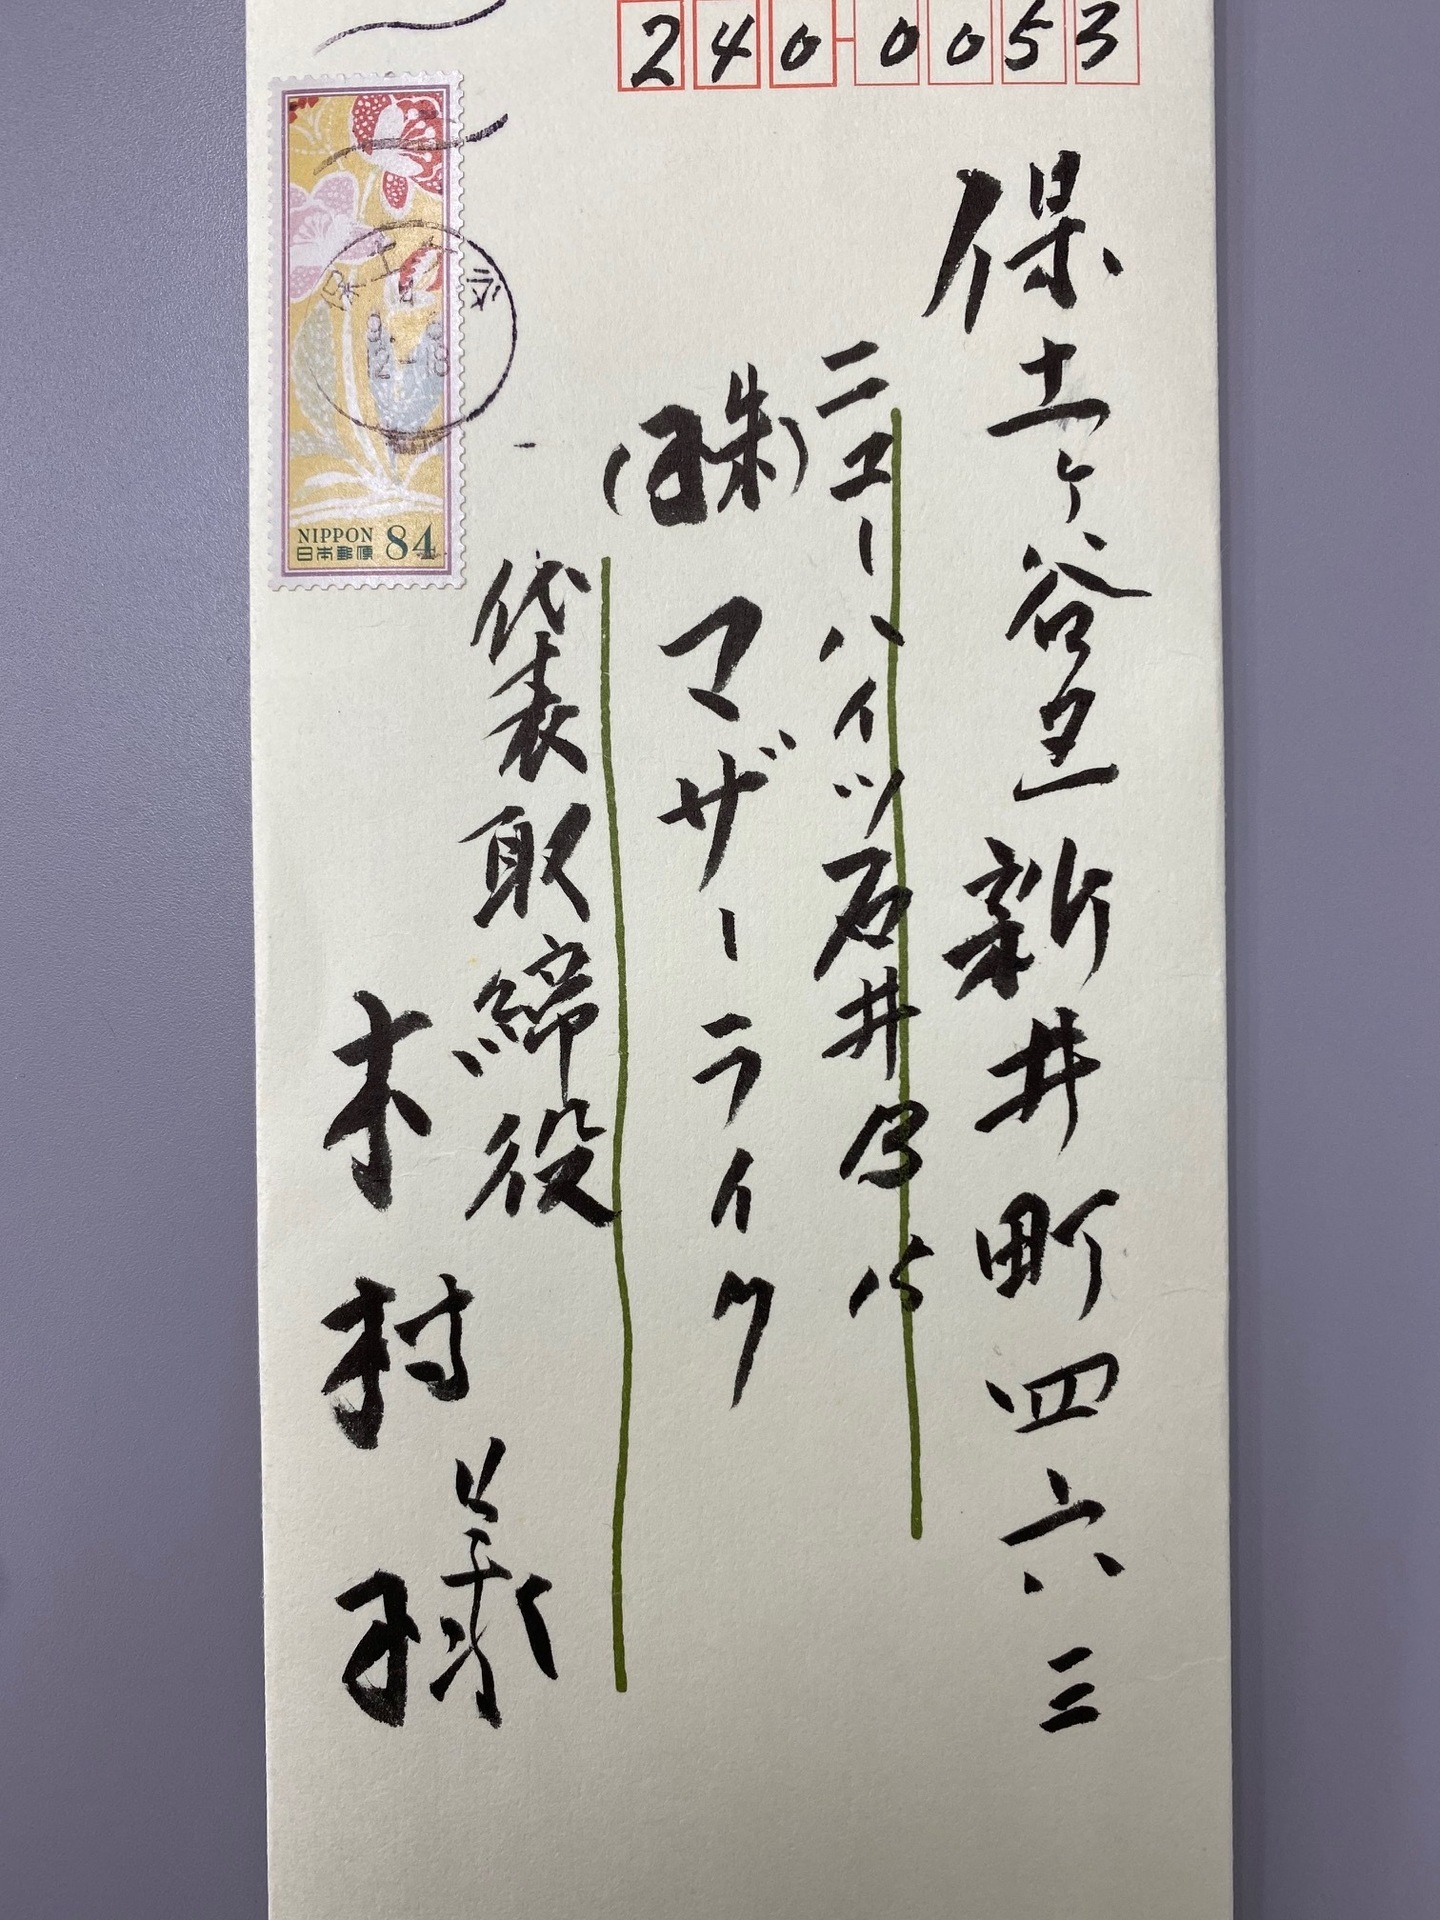 240-0053
保土ヶ谷区新井町四六三
ニューハイツ石井B15
(株)マザーライク
代表取締役
木村様
NIPPON
日本郵便 84
保土ヶ谷
12-18